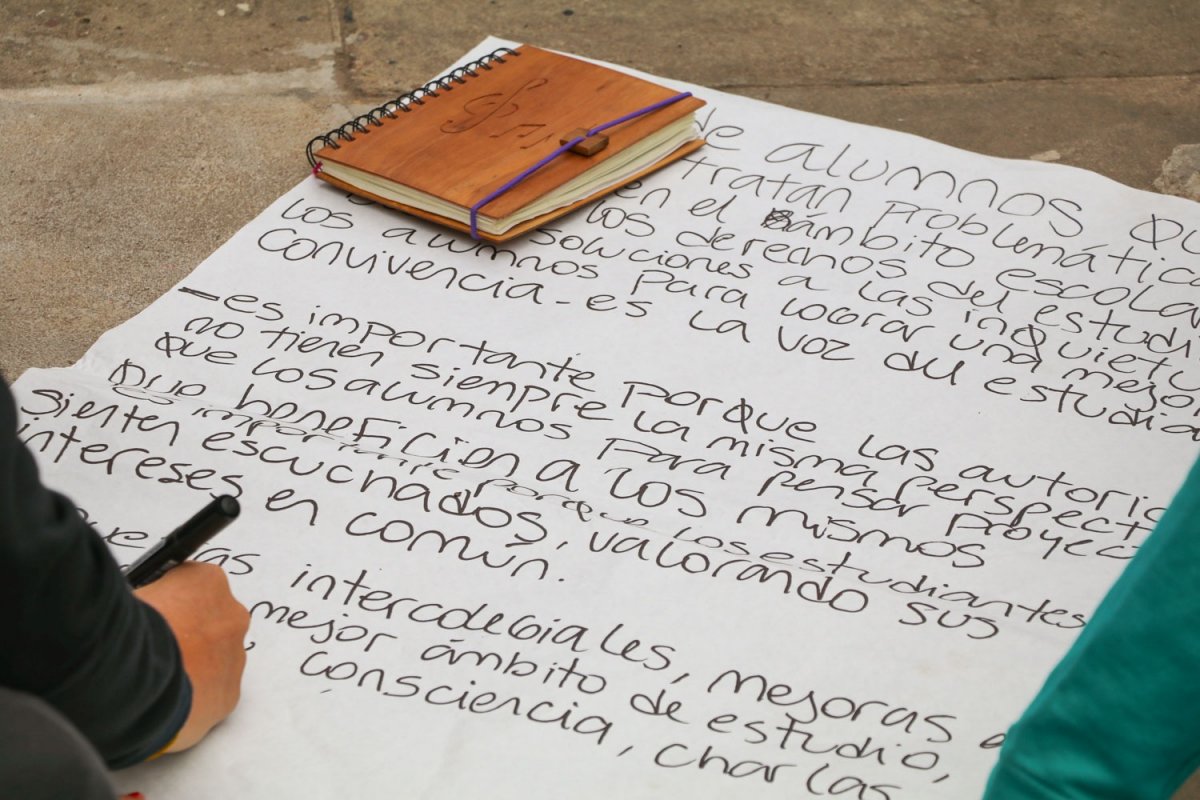 de alumnos qu
tratan problemátic
en el ámbito escola
los derechos del estudi
soluciones a las inquietu
los alumnos para lograr una mejo
convivencia - es la voz del estudia
- es importante porque las autori
no tienen siempre la misma perspect
que los alumnos para pensar proyec
que beneficien a los mismos
es importante porque los estudiantes
sienten escuchados, valorando sus
intereses en común.
intercolegiales, mejoras
mejor ámbito de estudio,
consciencia, charlas